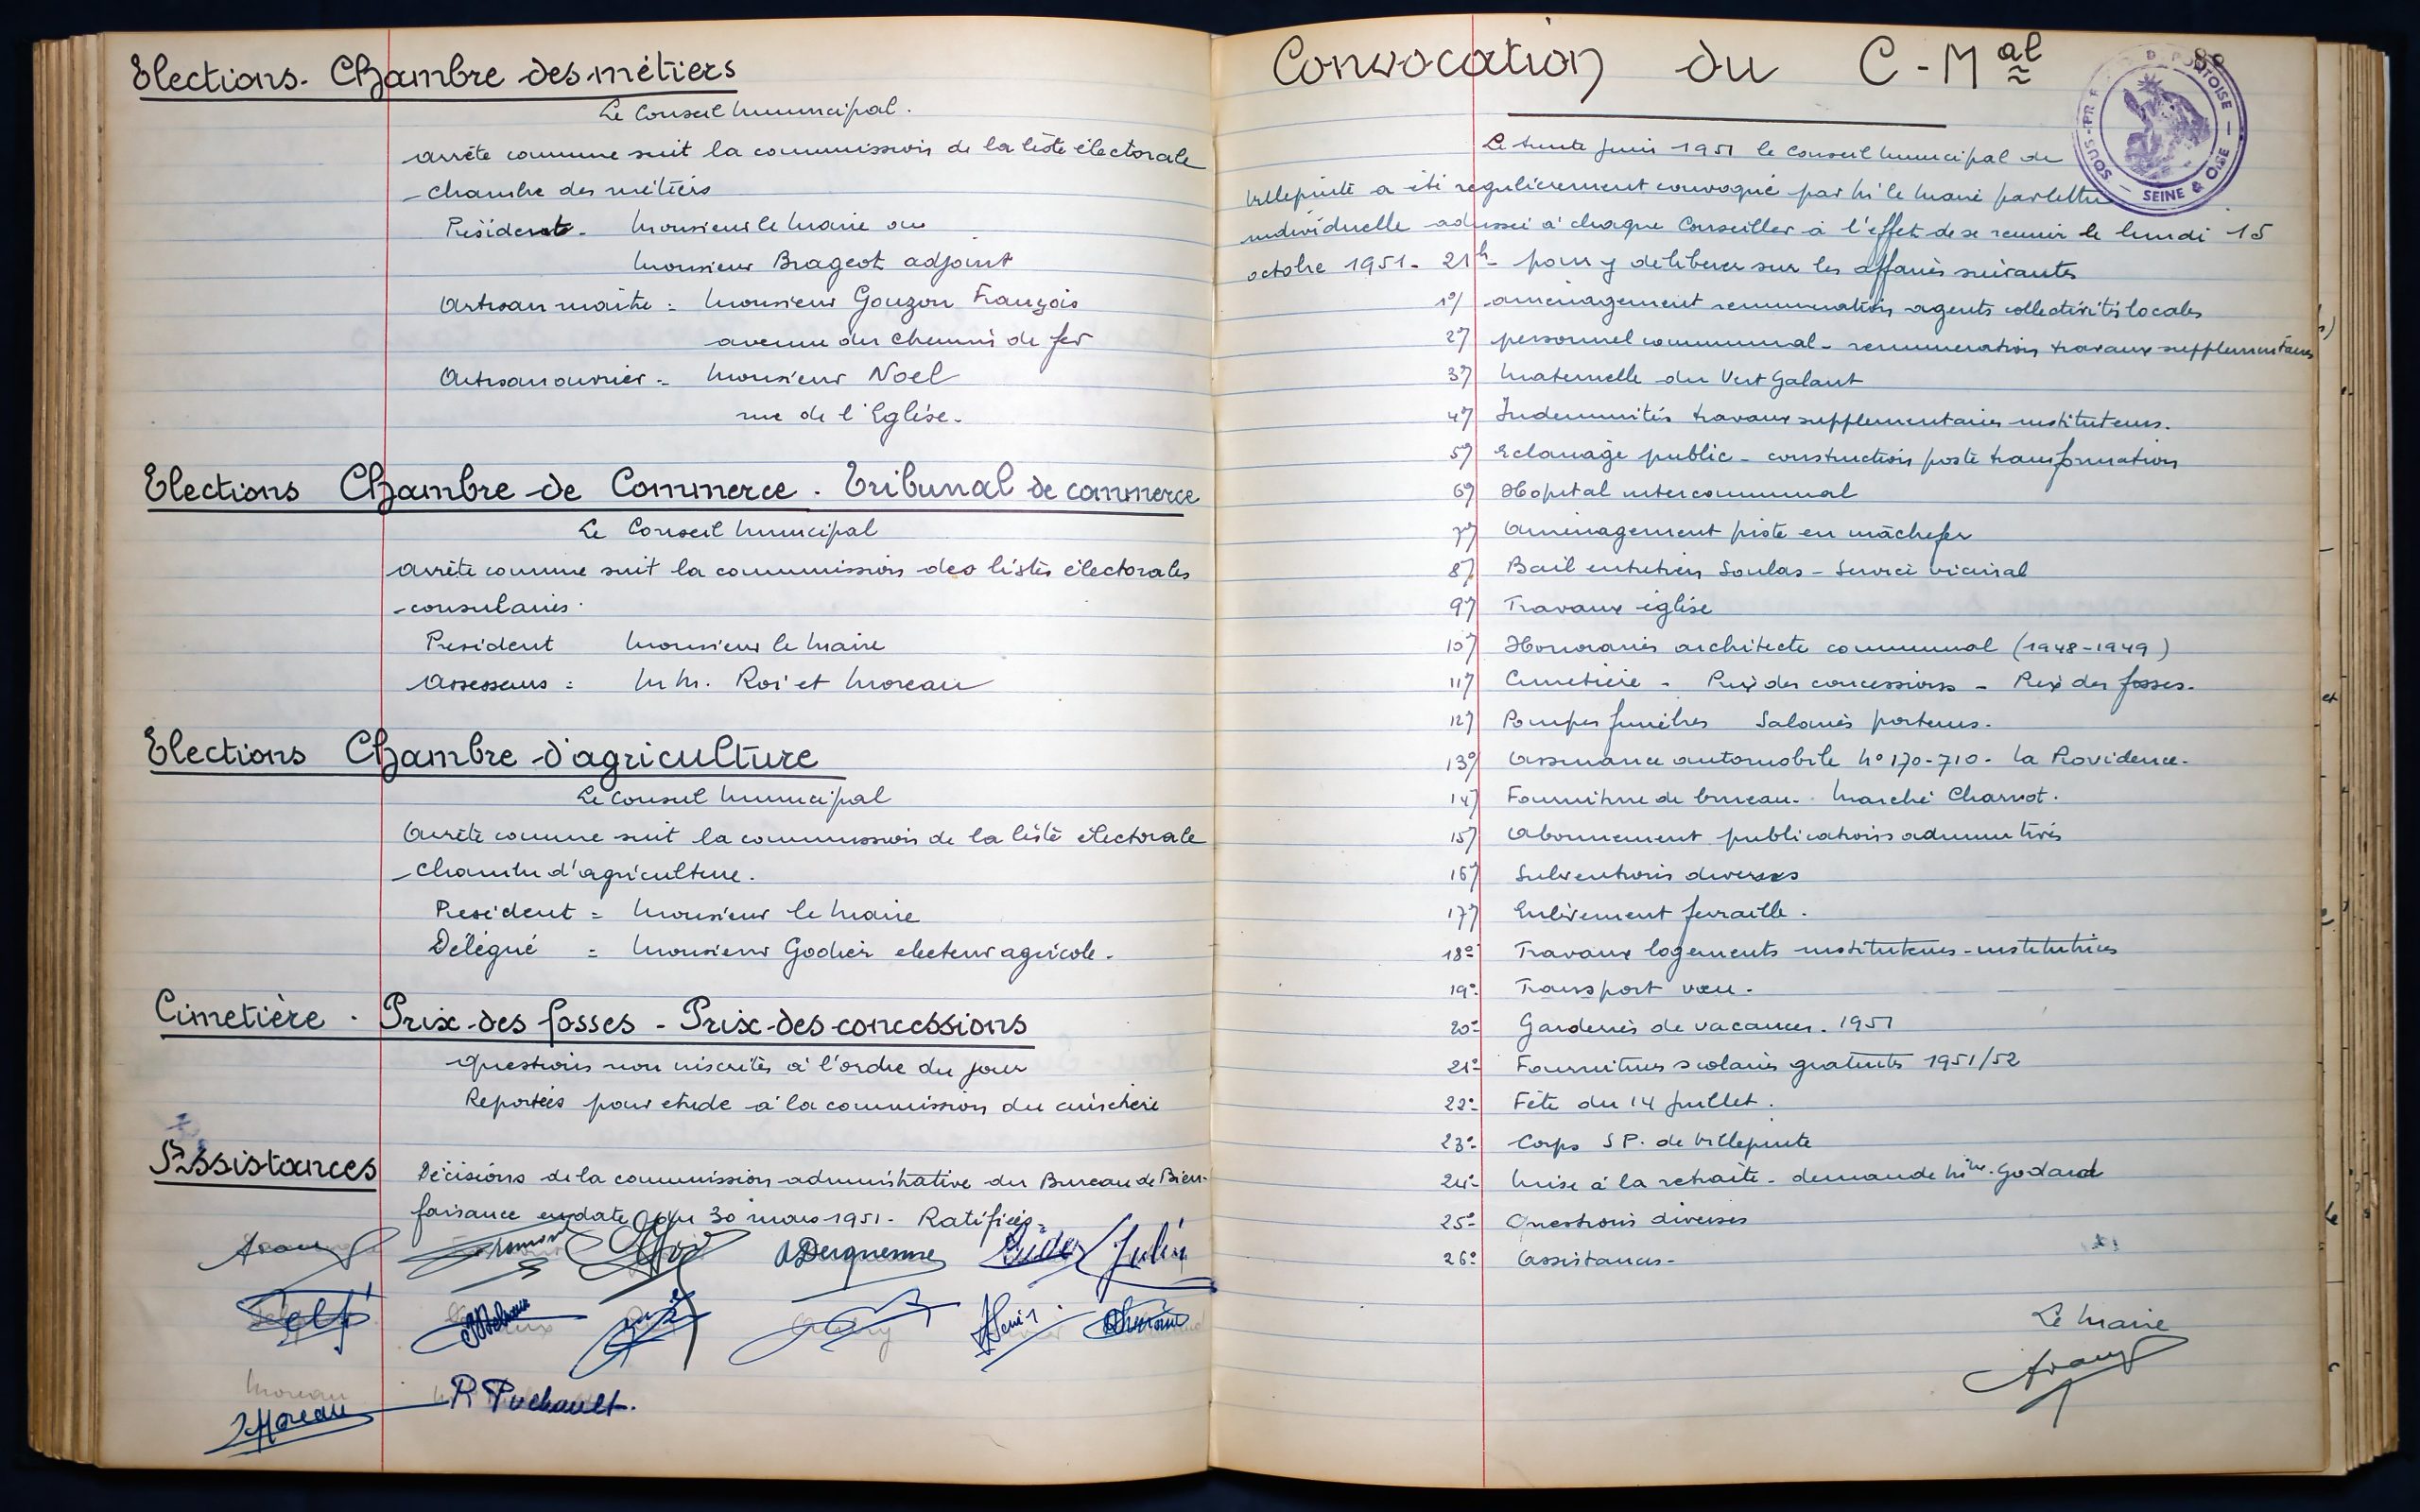 Elections. Chambre des métiers
Le Conseil Municipal.
arrête comme suit la commission de la liste électorale
chambre des métiers
Président. Monsieur le Maire ou
Monsieur Brageot adjoint
Artisan maître : Monsieur Gouzon François
avenue du chemin de fer
Artisan ouvrier = Monsieur Noel
rue de l'Eglise.
Elections Chambre de Commerce. Tribunal de commerce
Le Conseil Municipal
arrête comme suit la commission des listes électorales
consulaires.
President Monsieur le Maire
Assesseurs : M M. Roi et Moreau
Elections Chambre d'agriculture
Le Conseil Municipal
Arrête comme suit la commission de la liste électorale
chambre d'agriculture.
President = Monsieur le Maire
Délégué = Monsieur Godier electeur agricole.
Cimetière. Prix des fosses - Prix des concessions
Questions non inscrites à l'ordre du jour
Reportées pour etude à la commission du cimetière
Assistances
Décisions de la commission administrative du Bureau de Bien-
faisance en date du 30 mars 1951. Ratifiées.
A Derquenne Julin
Moreau
J Moreau R Puchault.
Convocation du C-Mal
SOUS-PREF DE PONTOISE
SEINE & OISE
Le trente juin 1951 le Conseil Municipal de
Villepinte a été regulièrement convoqué par M le Maire par lettre
individuelle adressée à chaque Conseiller à l'effet de se reunir le lundi 15
octobre 1951. 21h pour y deliberer sur les affaires suivantes
1°/ aménagement remunération agents collectivités locales
2°/ personnel communal - remuneration travaux supplementaires
3°/ Maternelle du Vert Galant
4°/ Indemnités travaux supplementaires instituteurs.
5°/ Eclairage public - construction poste transformation
6°/ Hopital intercommunal
7°/ Aménagement piste en mâchefer
8°/ Bail entretien Soulas - Service vicinal
9°/ Travaux église
10°/ Honoraires architecte communal (1948-1949)
11°/ Cimetière - Prix des concessions - Prix des fosses.
12°/ Pompes funèbres Salaires porteurs.
13°/ Assurance automobile N° 170-710. La Providence.
14°/ Fourniture de bureau. Marché Charvot.
15°/ Abonnement publications adminutives
16°/ Subventions diverses
17°/ Enlèvement ferraille.
18° Travaux logements instituteurs-institutrices
19° Transport vœu.
20° Garderies de vacances. 1951
21° Fournitures scolaires gratuites 1951/52
22° Fête du 14 Juillet.
23° Corps S P. de Villepinte
24° Mise à la retraite - demande Mme. Godard
25° Questions diverses
26° Assistances.
Le Maire